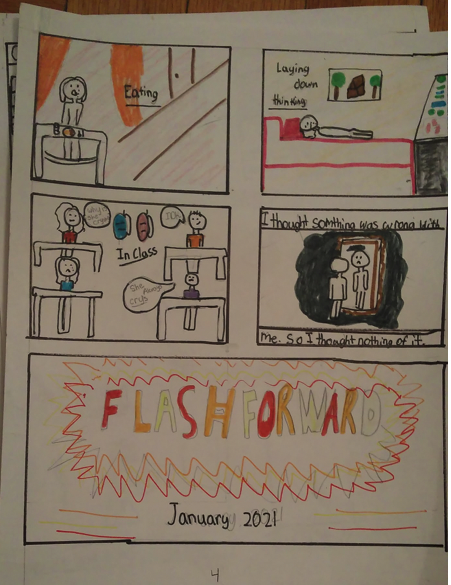 Eating
Laying
down
thinking
Why is
she
crying
IDK
In Class
She always
crys
I thought somthing was wrong with
Me. So I thought nothing of it.
FLASH FORWARD
January 2021
4